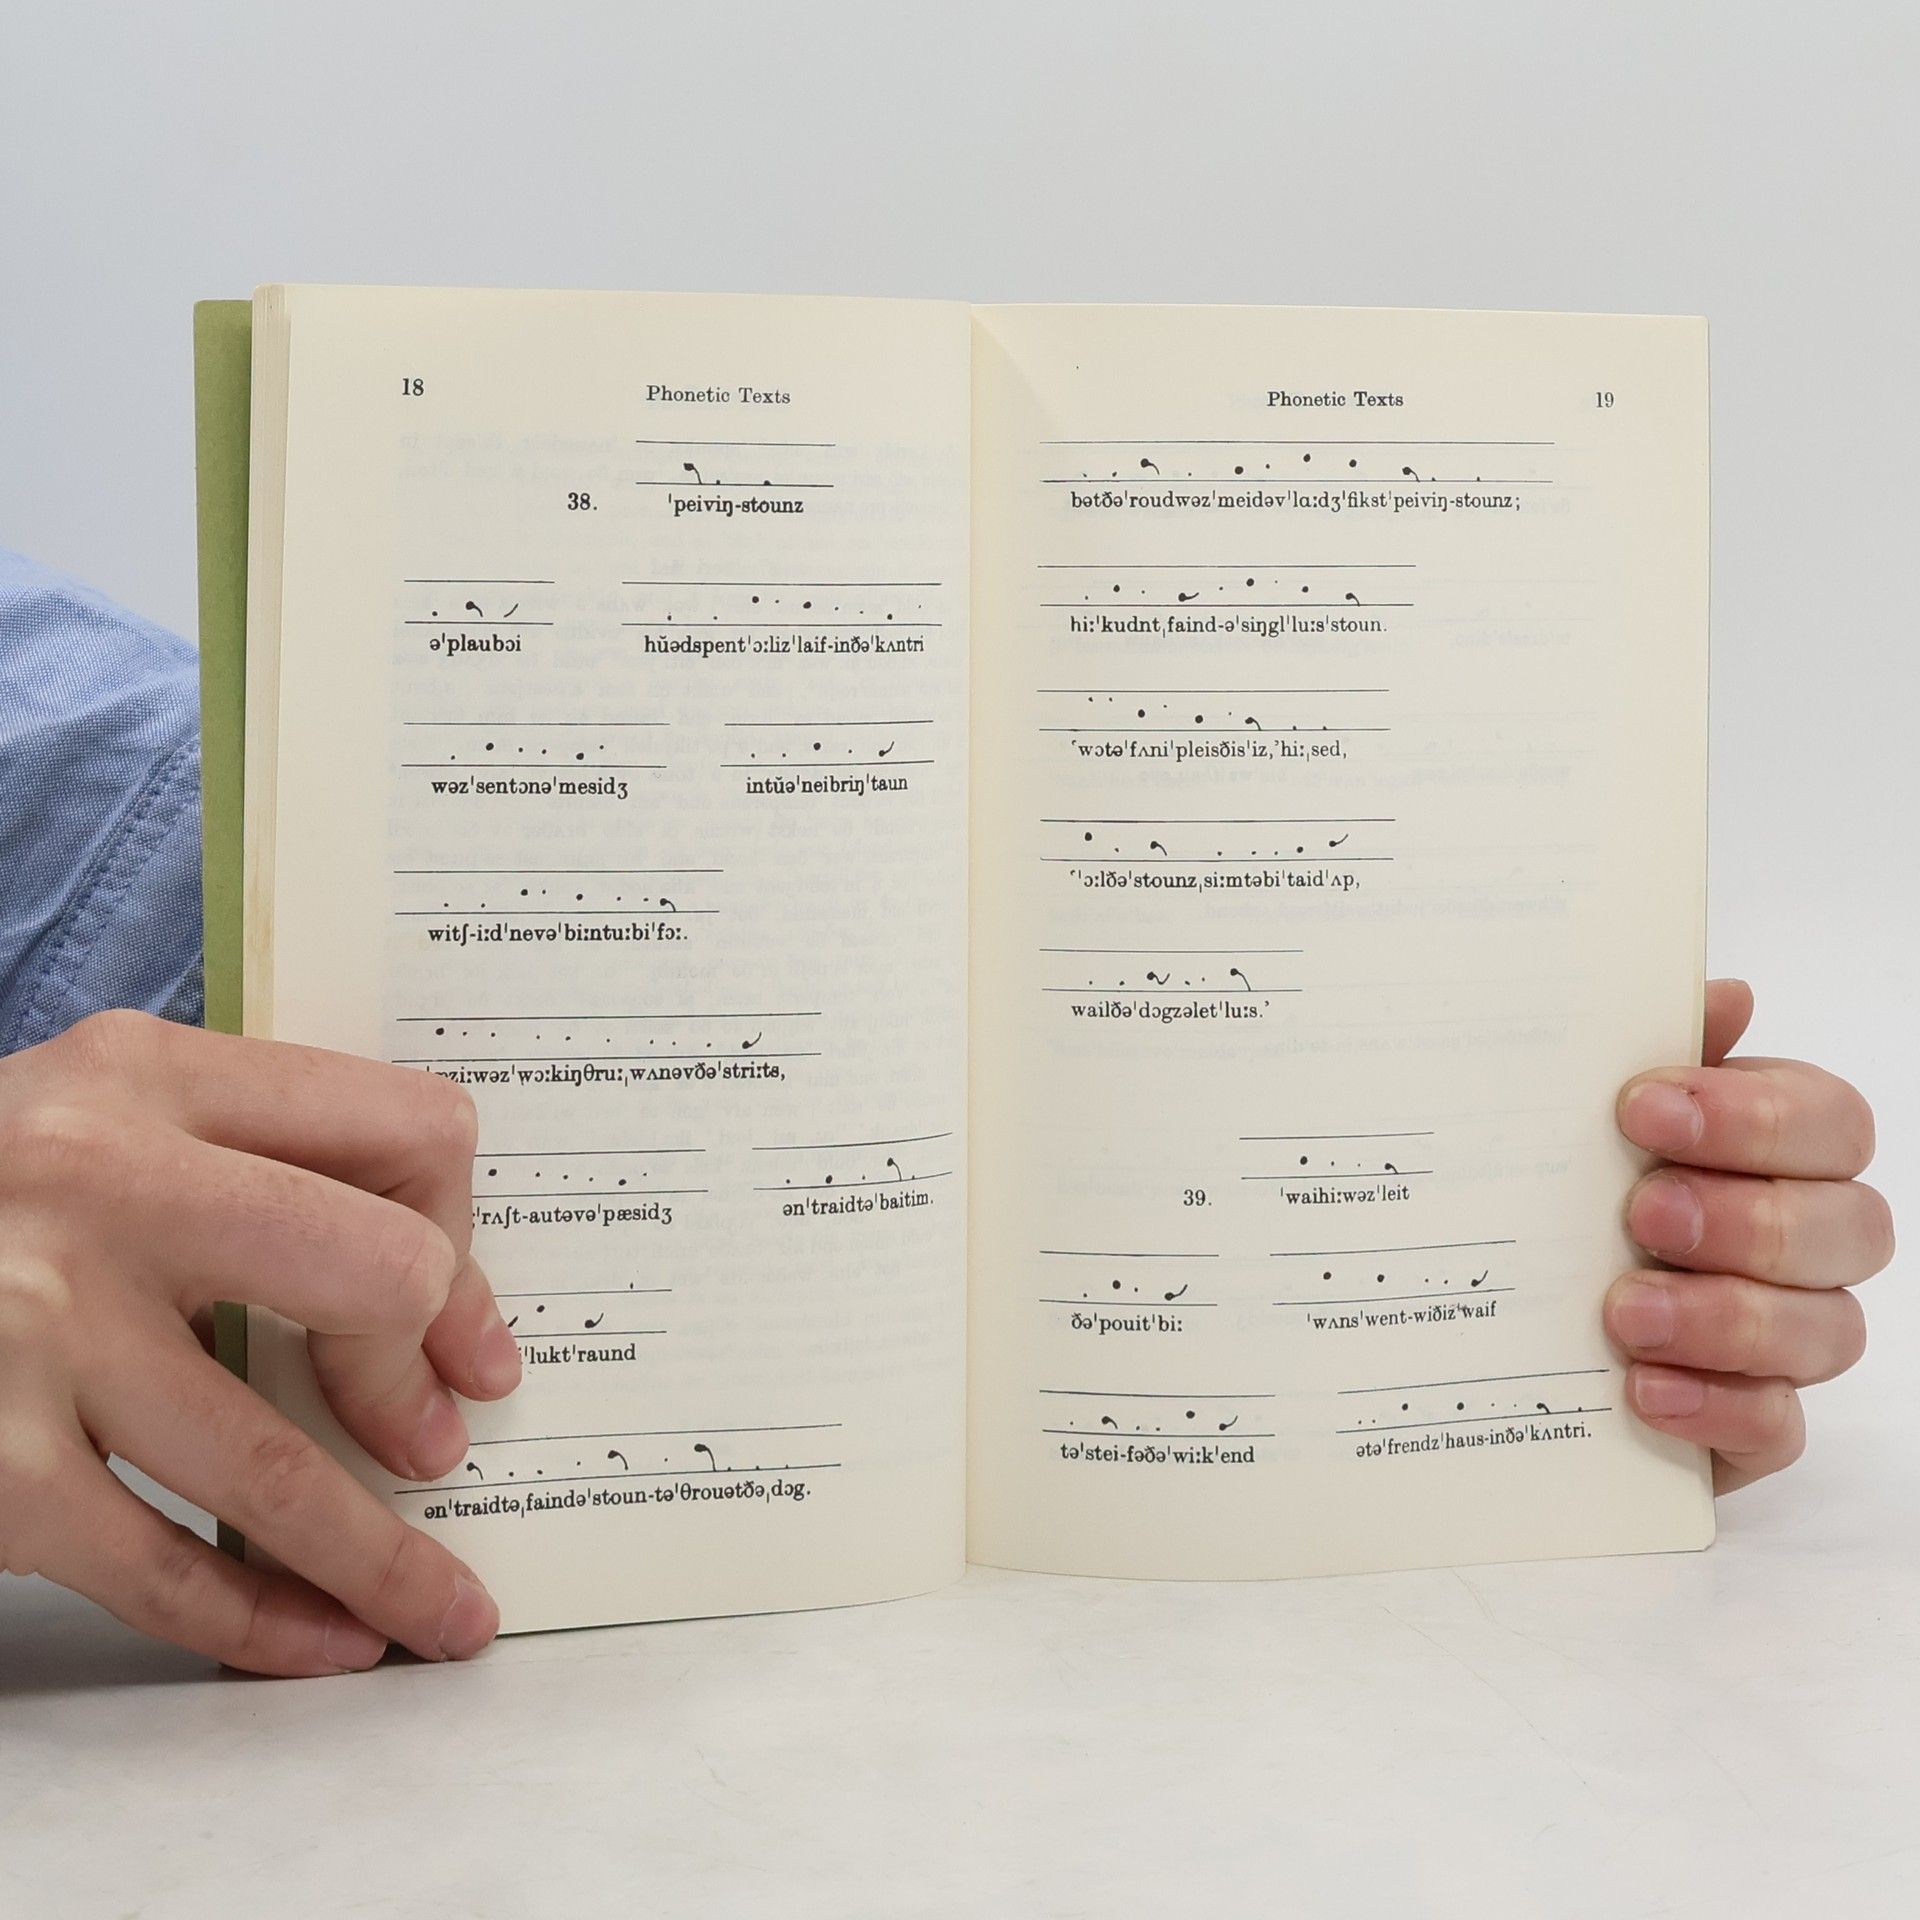 18
Phonetic Texts
38. ˈpeiviŋ-stounz
əˈplaubɔi hŭədspentˈɔːlizˈlaif-inðəˈkʌntri
wəzˈsentɔnəˈmesidʒ intŭəˈneibriŋˈtaun
witʃ-iːdˈnevəˈbiːntuːbiˈfɔː.
ziːwəzˈwɔːkiŋθruːˌwʌnəvðəˈstriːts,
ˈrʌʃt-autəvəˈpæsidʒ ənˈtraidtəˈbaitim.
ˈluktˈraund
ənˈtraidtəˌfaindəˈstoun-təˈθrouətðəˌdɔg.
Phonetic Texts
19
bətðəˈroudwəzˈmeidəvˈlɑːdʒˈfikstˈpeiviŋ-stounz;
hiːˈkudntˌfaind-əˈsiŋglˈluːsˈstoun.
‘ˈwɔtəˈfʌniˈpleisðisˈiz,’hiːˌsed,
‘ˈɔːlðəˈstounzˌsiːmtəbiˈtaidˈʌp,
wailðəˈdɔgzəletˈluːs.’
39. ˈwaihiːwəzˈleit
ðəˈpouitˈbiː ˈwʌnsˈwent-wiðizˈwaif
təˈstei-fəðəˈwiːkˈend ətəˈfrendzˈhaus-inðəˈkʌntri.